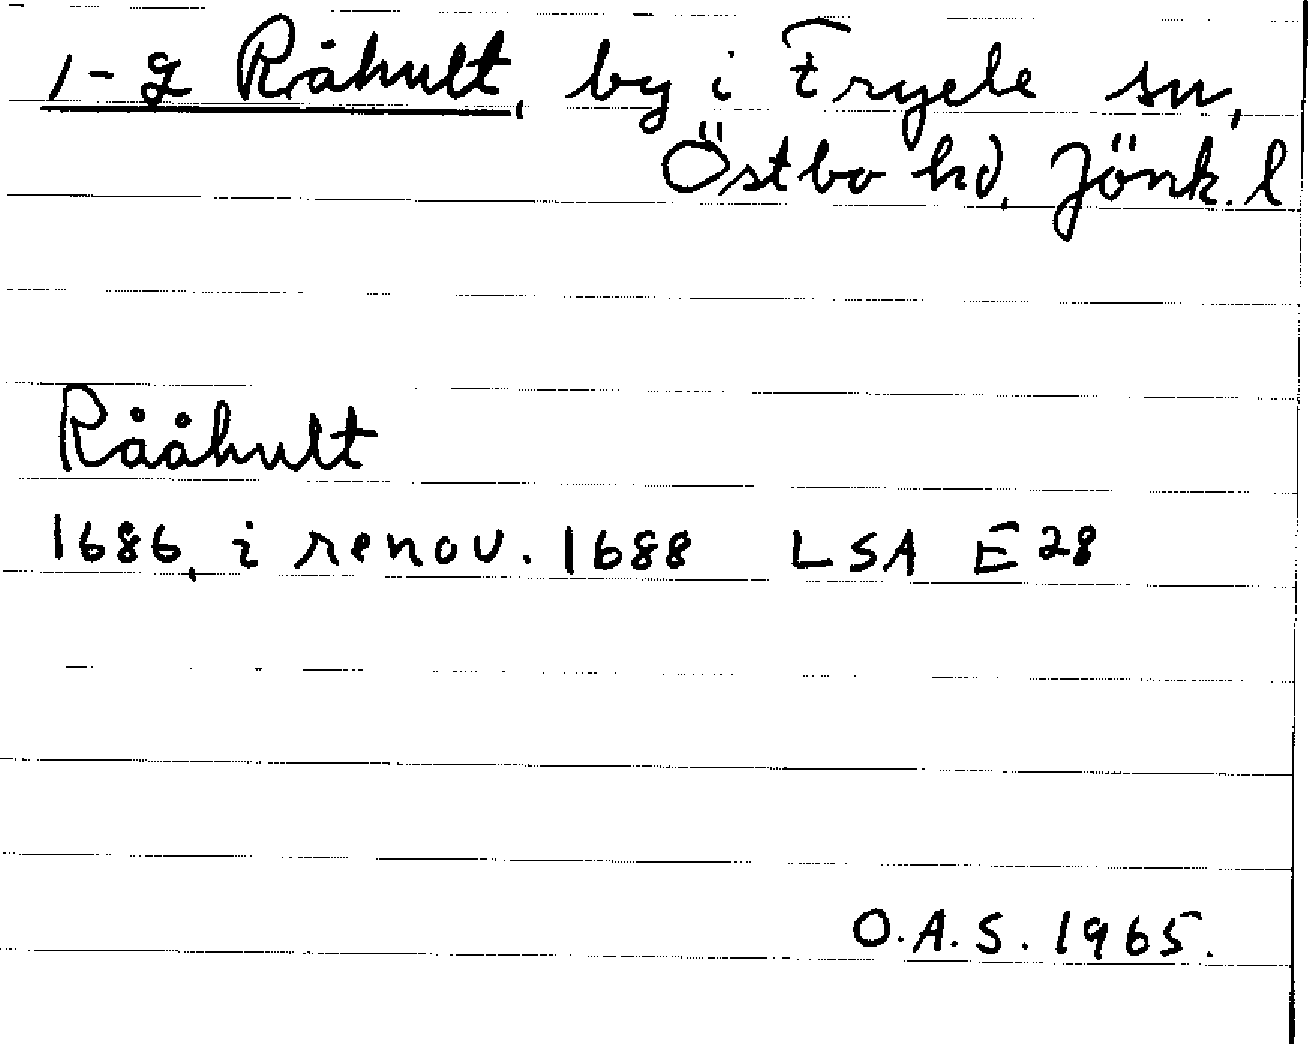 1-2 Råhult, by i Fryele sn,
Östbo hd, Jönk. l
Rååhult
1686, i renov. 1688 LSA E28
O.A.S. 1965.